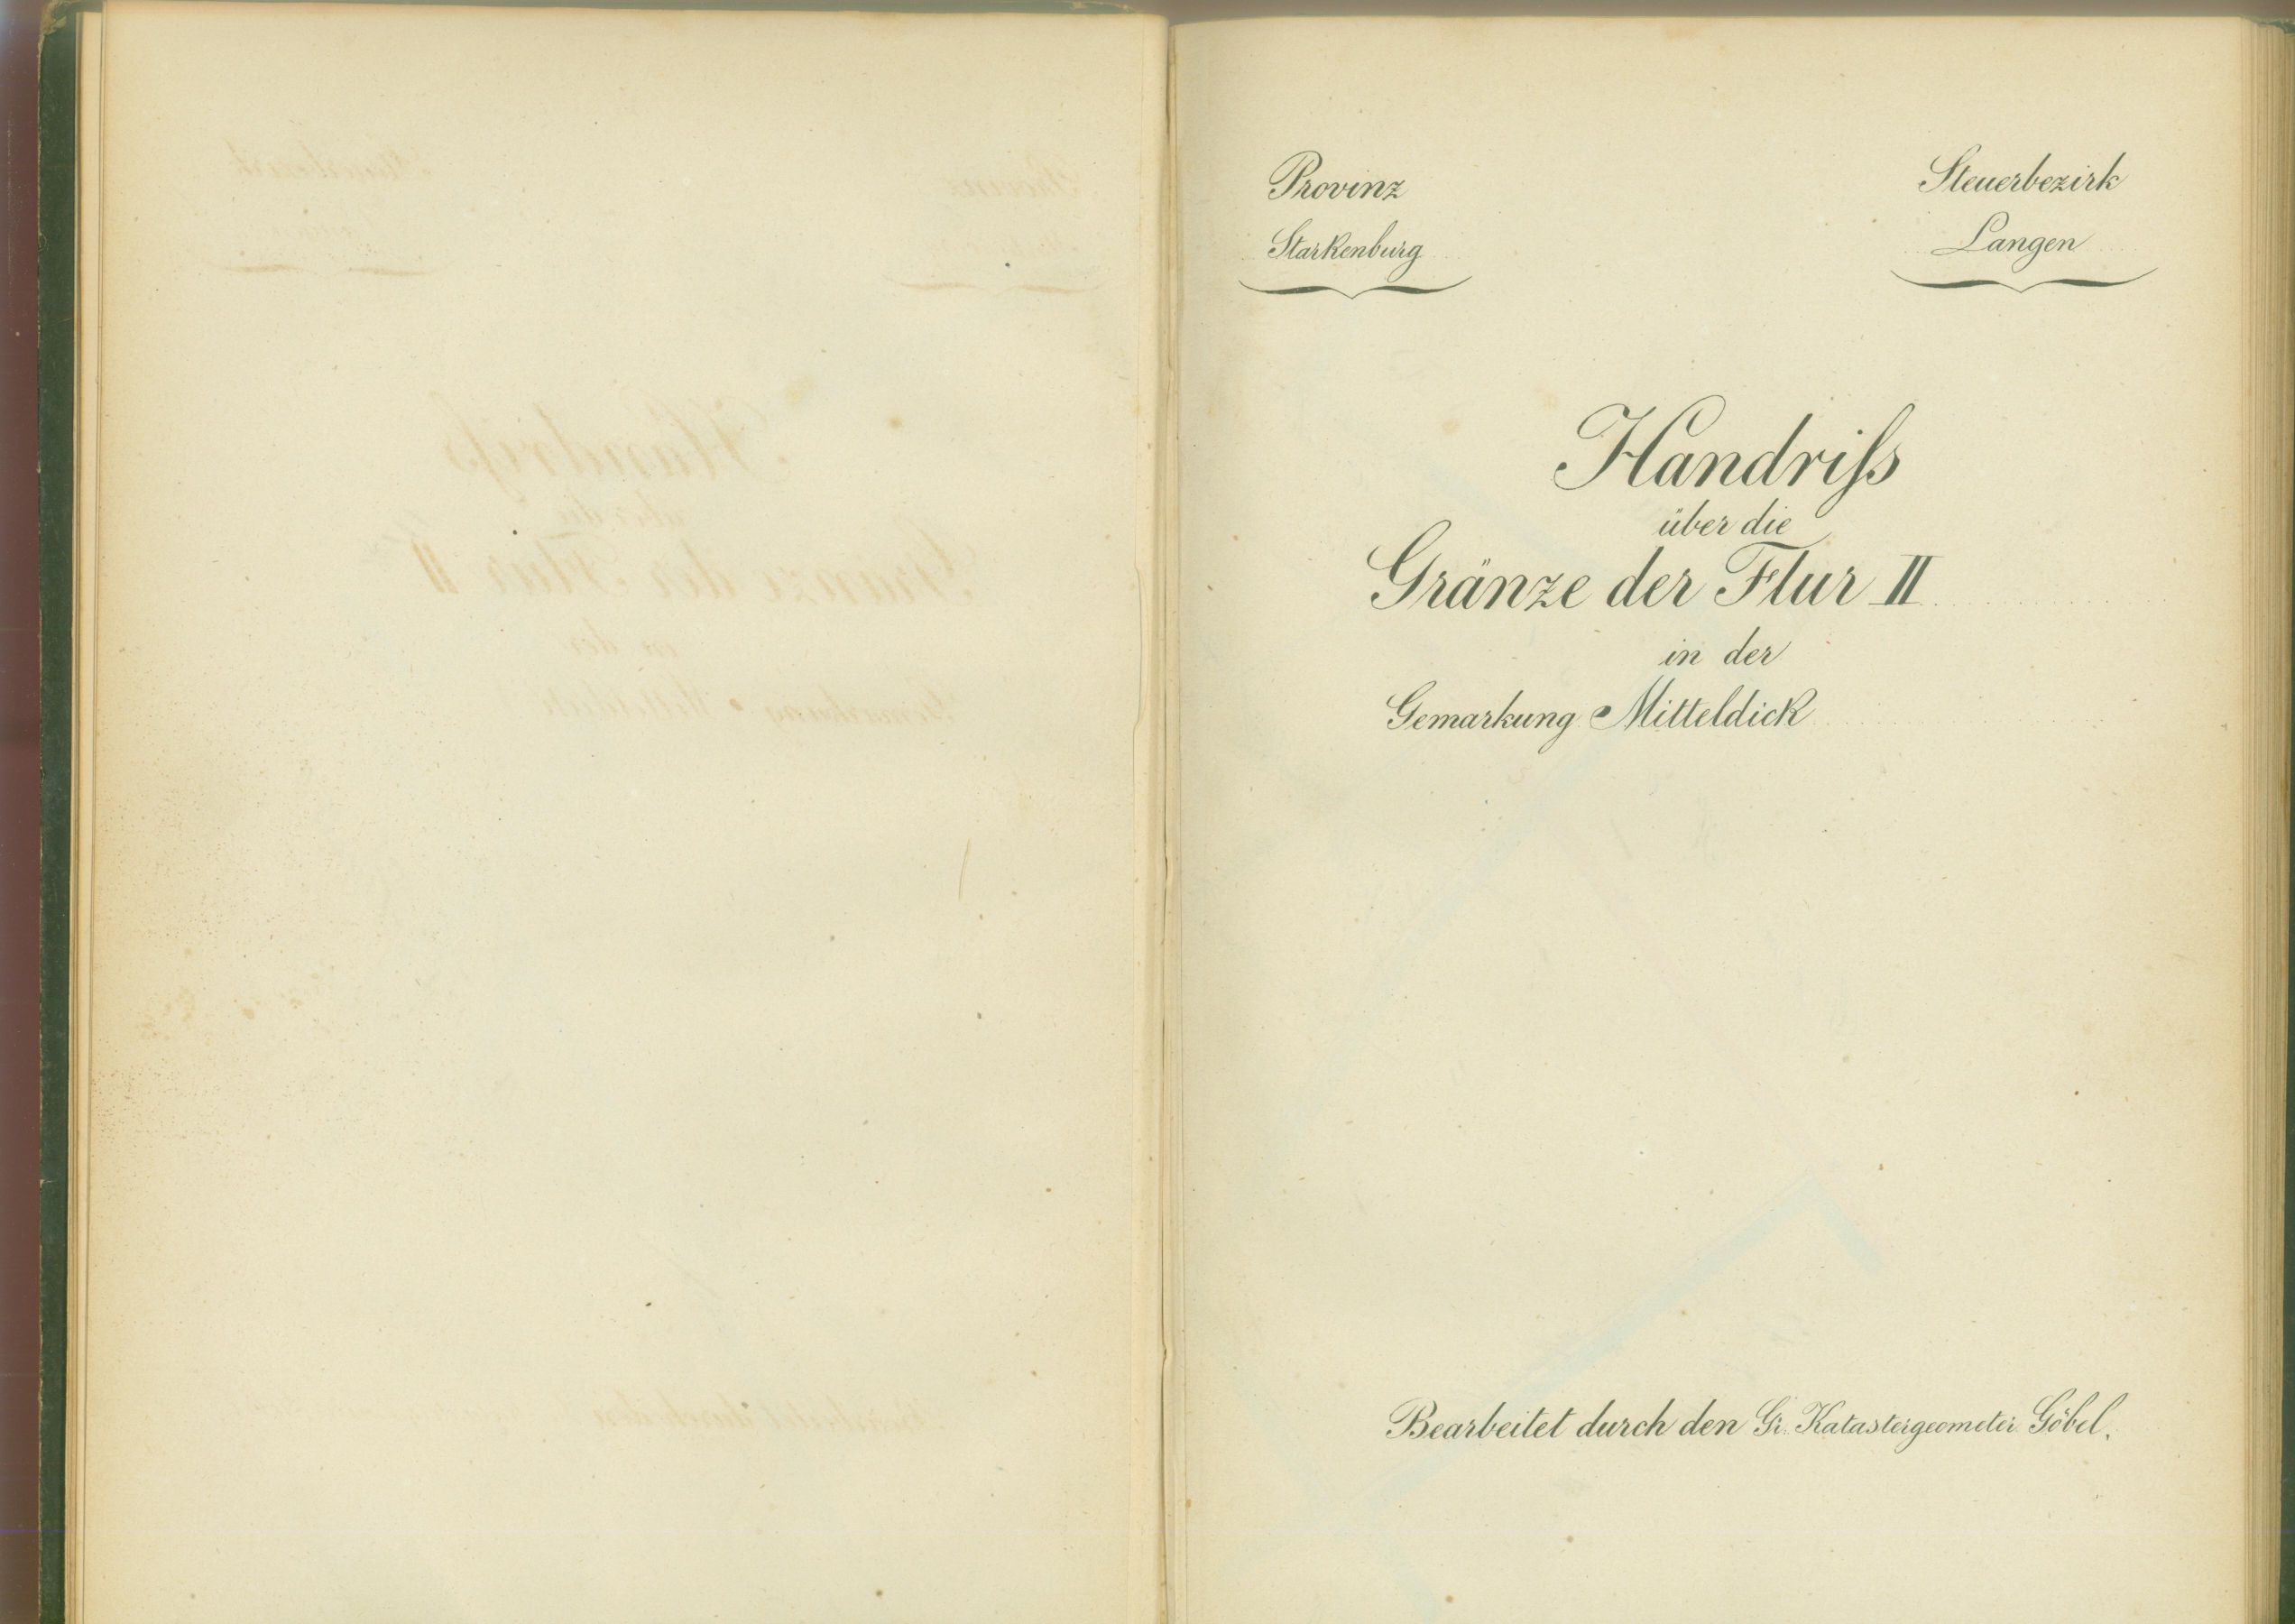 Provinz
Starkenburg
Steuerbezirk
Langen
Handriſs
über die
Gränze der Flur II
in der
Gemarkung Mitteldick
Bearbeitet durch den Gr. Katastergeometer Göbel.